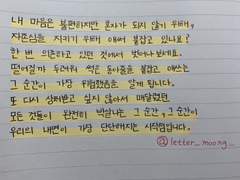 내 마음은 불편하지만 혼자가 되지 않기 위해,
자존심을 지키기 위해 애써 붙잡고 있나요?
한 번 의존하고 있던 것에서 벗어나보세요.
떨어질까 두려워 썩은 동아줄을 붙잡고 애쓰는
그 순간이 가장 위험했음을 알게 됩니다.
또 다시 상처받고 싶지 않아서 매달렸던
모든 것들이 완전히 박살나는 그 순간, 그 순간이
우리의 내면이 가장 단단해지는 시작점입니다.
@letter_moong_